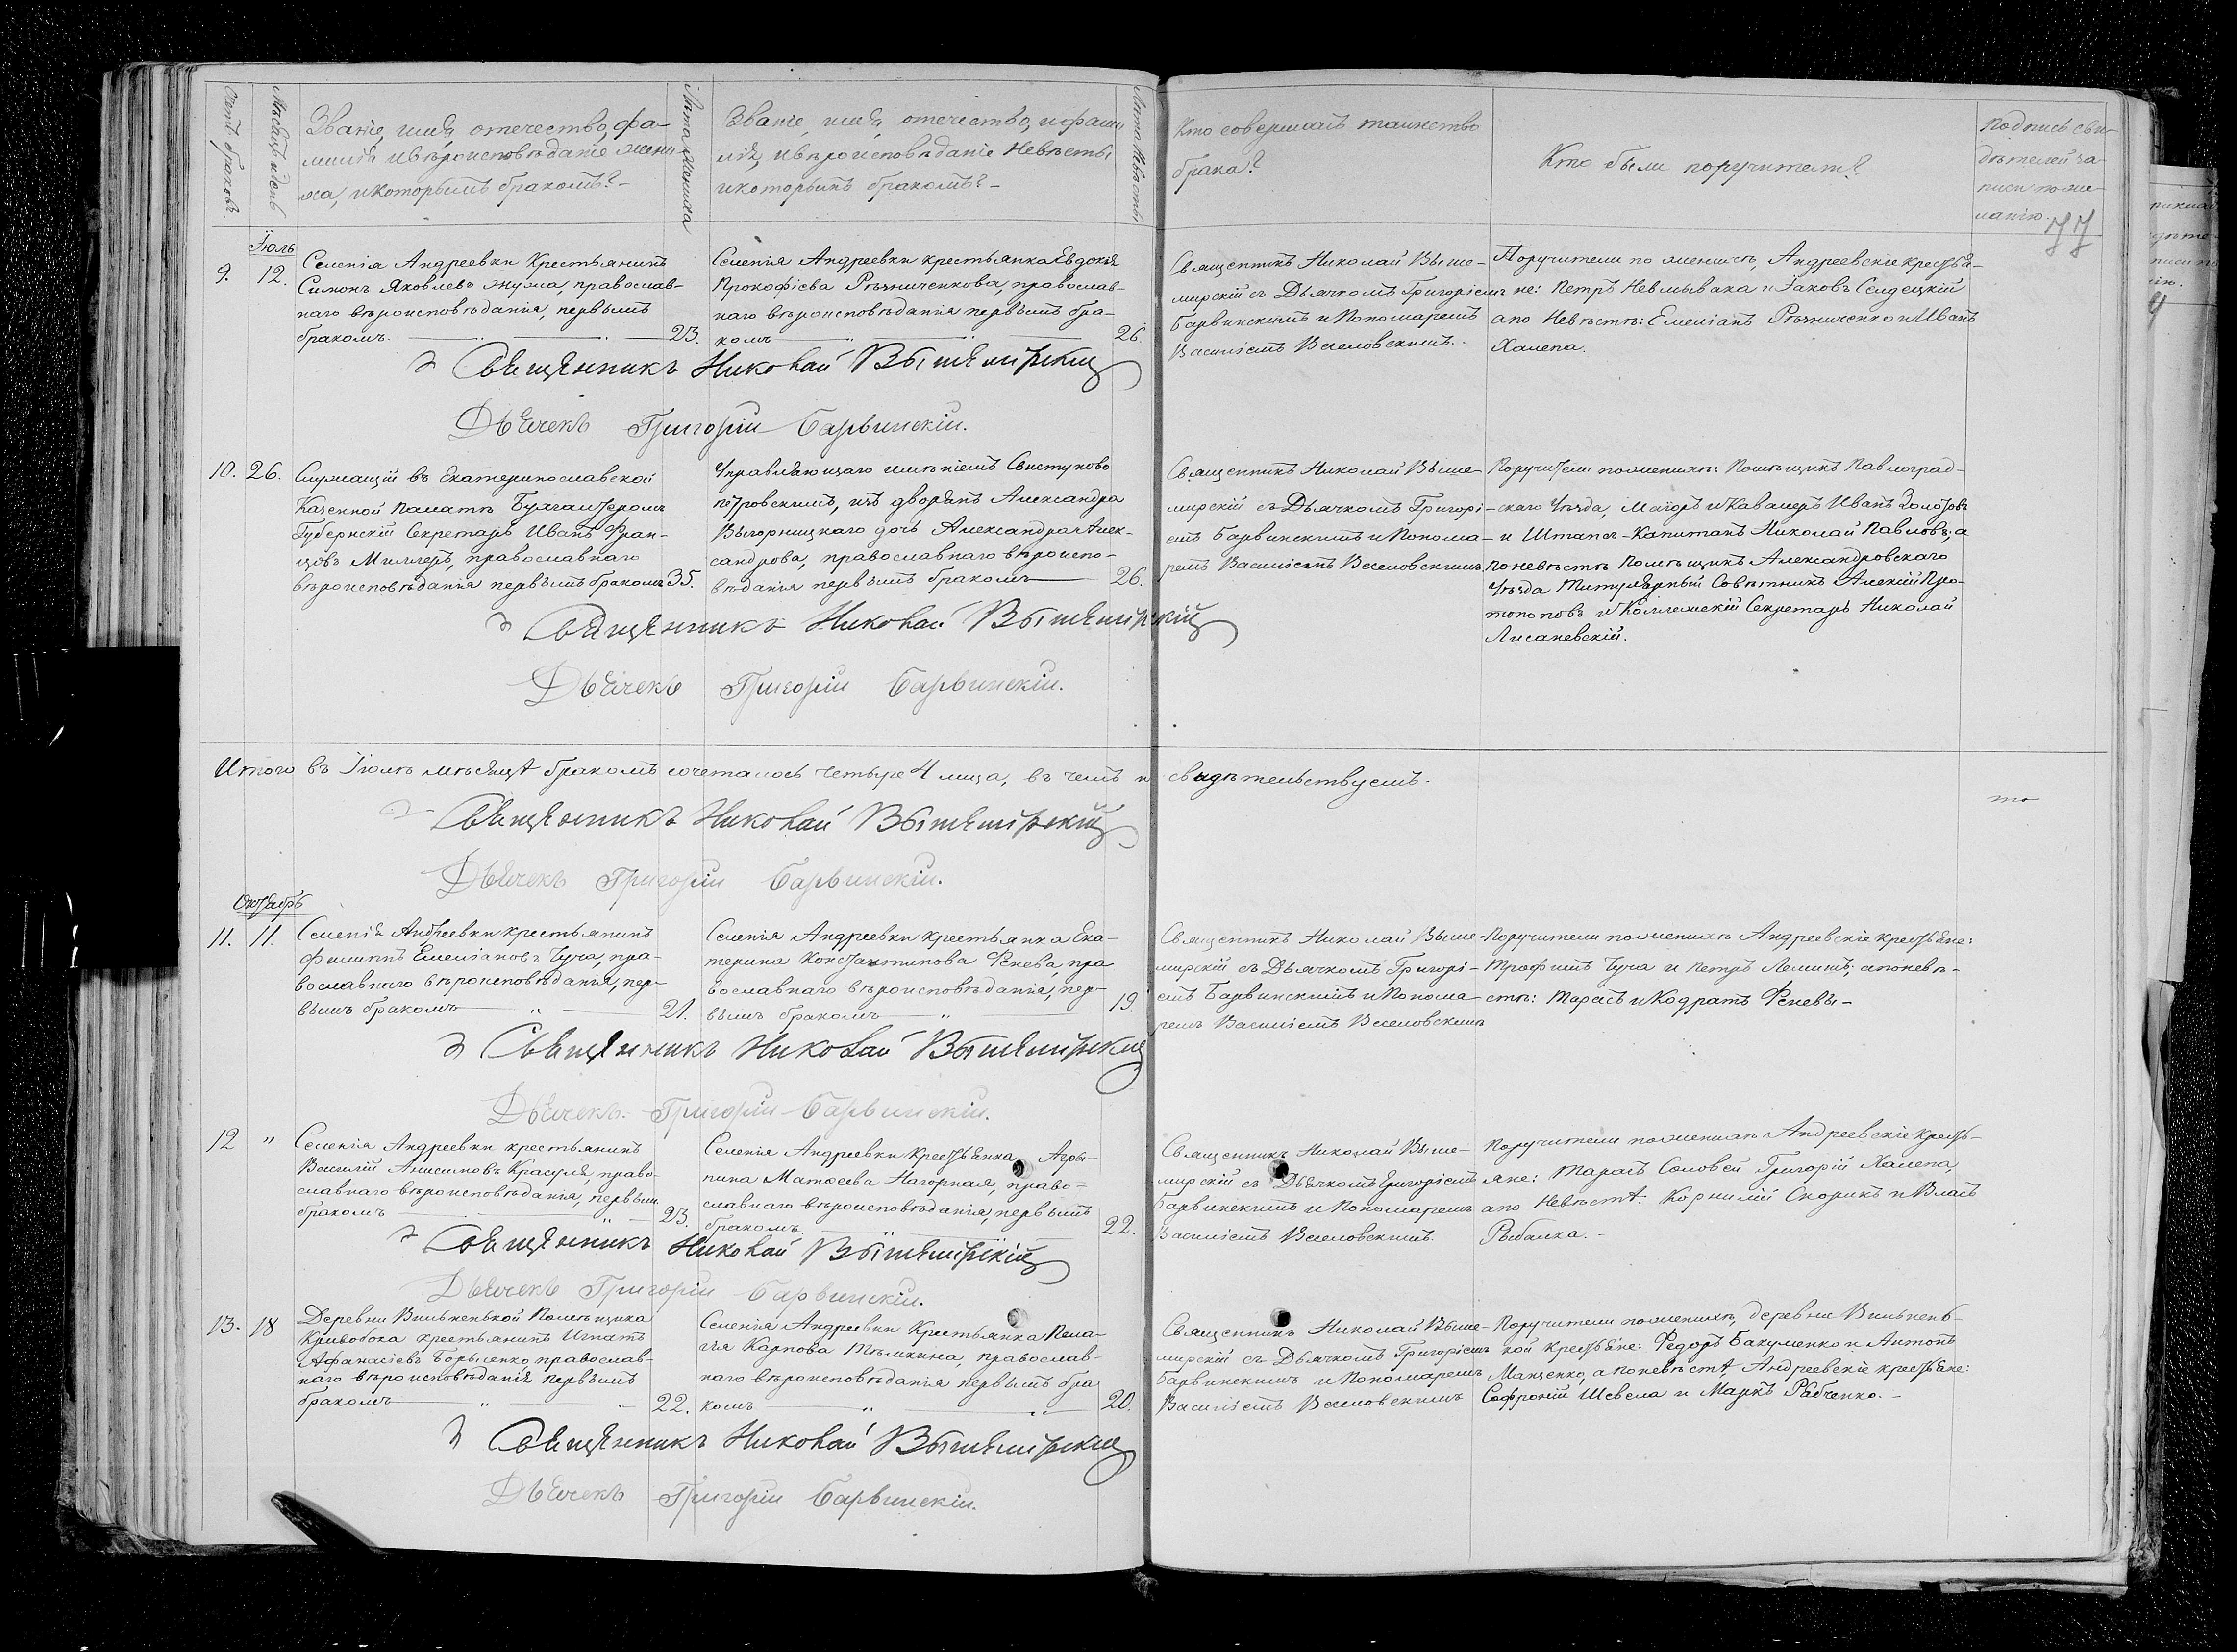 Счетъ браковъ.
Мѣсяцъ и день
Званіе, имя, отечество, фа-
милія и вѣроисповѣданіе жени-
ха, и которымъ бракомъ?-
Лѣта Жениха
Званіе, имя, отечество, и фами
лія, и вѣроисповѣданіе Невѣсты
и которымъ бракомъ?-
Лѣта Невѣсты
Кто совершалъ таинство
брака?
Кто были поручители?
Подпись сви-
дѣтелей за-
писи по же-
ланію.
77
Іюль
9. 12.
Селенія Андреевки Крестьянинъ
Симонъ Яковлевъ Жужа, православ-
наго вѣроисповѣданія, первымъ
бракомъ. 23.
Селенія Андреевки крестьянка Евдокія
Прокофіева Рѣзниченкова, православ-
наго вѣроисповѣданія первымъ бра-
комъ 26.
Священникъ Николай Выше-
мирскій съ Дьячкомъ Григоріемъ
Барвинскимъ и Пономаремъ
Василіемъ Веселовскимъ.
Поручители по женихѣ, Андреевскіе крестья-
не: Петръ Невмывака и Іаковъ Селецкій
а по Невѣстѣ: Емеліанъ Рѣзниченко и Иванъ
Халепа.
Священникъ Николай Вышемирскій
Дьячекъ Григорій Барвинскій.
10. 26.
Служащій въ Екатеринославской
Казенной Палатѣ Бухгалтеромъ
Губернскій Секретарь Иванъ Фран-
цовъ Миллеръ, православнаго
вѣроисповѣданія первымъ бракомъ 35.
Управляющаго имѣніемъ Свистуново
петровскимъ, изъ дворянъ Александра
Выгорницкаго дочь Александра Алек-
сандрова, православнаго вѣроиспо-
вѣданія первымъ бракомъ 26.
Священникъ Николай Выше-
мирскій съ Дьячкомъ Григорі-
емъ Барвинскимъ и Понома-
ремъ Василіемъ Веселовскимъ
Поручители по женихѣ: Помѣщикъ Павлоград-
скаго Уѣзда, Маіоръ и Кавалеръ Иванъ
и Штапсъ-Капитанъ Николай Павловъ; а
по невѣстѣ Помѣщикъ Александровскаго
Уѣзда Титулярный Совѣтникъ Алексій Про-
топоповъ и Коллежскій Секретарь Николай
Лисаневскій.
Священникъ Николай Вышемирскій
Дьячекъ Григорій Барвинскій.
Итого въ Іюлѣ мѣсяцѣ бракомъ сочеталось четыре 4 лица, въ чемъ и свидѣтельствуемъ.
Священникъ Николай Вышемирскій
Дьячекъ Григорій Барвинскій.
Октябрь
11. 11.
Селенія Андреевки крестьянинъ
Филиппъ Емеліановъ Чуча, пра-
вославнаго вѣроисповѣданія, пер-
вымъ бракомъ " 21.
Селенія Андреевки крестьянка Ека-
терина Константинова Фенева, пра
вославнаго вѣроисповѣданія, пер-
вымъ бракомъ " 19.
Священникъ Николай Выше-
мирскій съ Дьячкомъ Григорі-
емъ Барвинскимъ и Понома-
ремъ Василіемъ Веселовскимъ
Поручители по женихѣ Андреевскіе крестьяне:
Трофимъ Чуча и Петръ Лемишъ; а по невѣ-
стѣ: Тарасъ и Кодратъ Феневы-
Священникъ Николай Вышемирскій
Дьячекъ Григорій Барвинскій.
12 "
Селенія Андреевки крестьянинъ
Василій Анисимовъ Красуля, право-
славнаго вѣроисповѣданія, первымъ
бракомъ " 23.
Селенія Андреевки Крестьянка Агри-
пина Матѳеева Нагорная, право-
славнаго вѣроисповѣданія, первымъ
бракомъ 22.
Священникъ Николай Выше-
мирскій съ Дьячкомъ Григоріемъ
Барвинскимъ и Пономаремъ
Василіемъ Веселовскимъ.
Поручители по женихѣ Андреевскіе кресть-
яне: Тарасъ Соловей Григорій Халепа,
а по Невѣстѣ: Корнилій Скорикъ и Власъ
Рыбалка.-
Священникъ Николай Вышемирскій
Дьячекъ Григорій Барвинскій.
13. 18
Деревни Вильненькой Помѣщика
Кривобока крестьянинъ Игнатъ
Афанасіевъ Борисенко, православ-
наго вѣроисповѣданія первымъ
бракомъ " 22.
Селенія Андреевки Крестьянка Пела-
гія Карпова Тѣлькина, православ-
наго вѣроисповѣданія первымъ бра
комъ " 20.
Священникъ Николай Выше-
мирскій съ Дьячкомъ Григоріемъ
Барвинскимъ и Пономаремъ
Василіемъ Веселовскимъ
Поручители по женихѣ, деревни Вильнень-
кой крестьяне: Федоръ Бакуменко и Антонъ
Маценко, а по невѣстѣ, Андреевскіе крестьяне:
Софроній Шевела и Маркъ Рябченко.-
Священникъ Николай Вышемирскій
Дьячекъ Григорій Барвинскій.